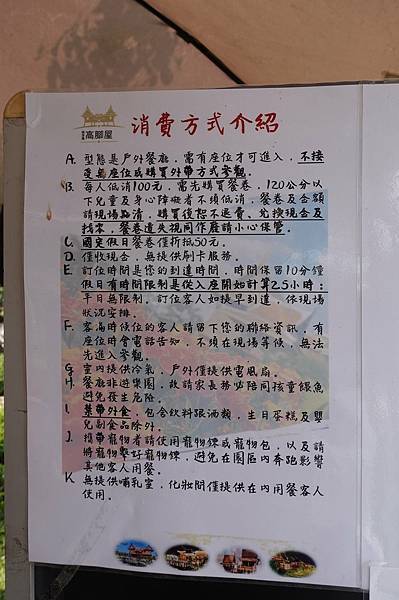 高腳屋
消費方式介紹
A. 型態是戶外餐廳，需有座位才可進入，不接
受無座位或購買外帶方式參觀。
B. 每人低消100元，需先購買餐卷，120公分以
下兒童及身心障礙者不須低消，餐卷及含額
請現場品清，購買後恕不退費、兌換現金及
找零，餐卷遺失視同作廢請小心保管。
C. 國定假日餐卷僅折抵50元。
D. 僅收現金，無提供刷卡服務。
E. 訂位時間是您的到達時間，時間保留10分鐘
假日有時間限制是從入座開始計算2.5小時：
平日無限制。訂位客人如提早到達，依現場
狀況安排。
F. 客滿時候位的客人請留下您的聯絡資訊，有
座位時會電話告知，不須在現場等候，無法
先進入參觀。
G. 室內提供冷氣，戶外僅提供電風扇。
H. 餐廳非遊樂園，故請家長務必陪同孩童餵魚
避免發生危險。
I. 禁帶外食，包含飲料跟酒類，生日蛋糕及嬰
兒副食品除外。
J. 攜帶寵物者請使用寵物鍊或寵物包，以及請
將寵物繫好寵物鍊，避免在園區內奔跑影響
其他客人用餐。
K. 無提供哺乳室，化妝間僅提供在內用餐客人
使用。